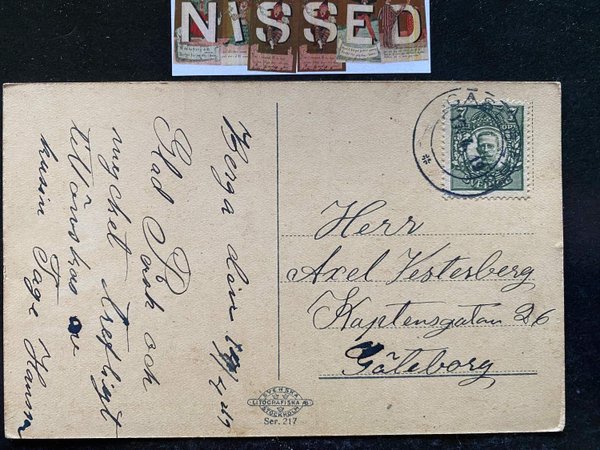 NISSED
Herga den 19/4 19
Glad Påsk och
mycket trefligt
tillönskas av
kusin Tage Hanson
GÅRA
SVERIGE
Herr
Axel Vesterberg
Kaptensgatan 26
Göteborg
SVENSKA
LITOGRAFISKA AB
STOCKHOLM
Ser. 217